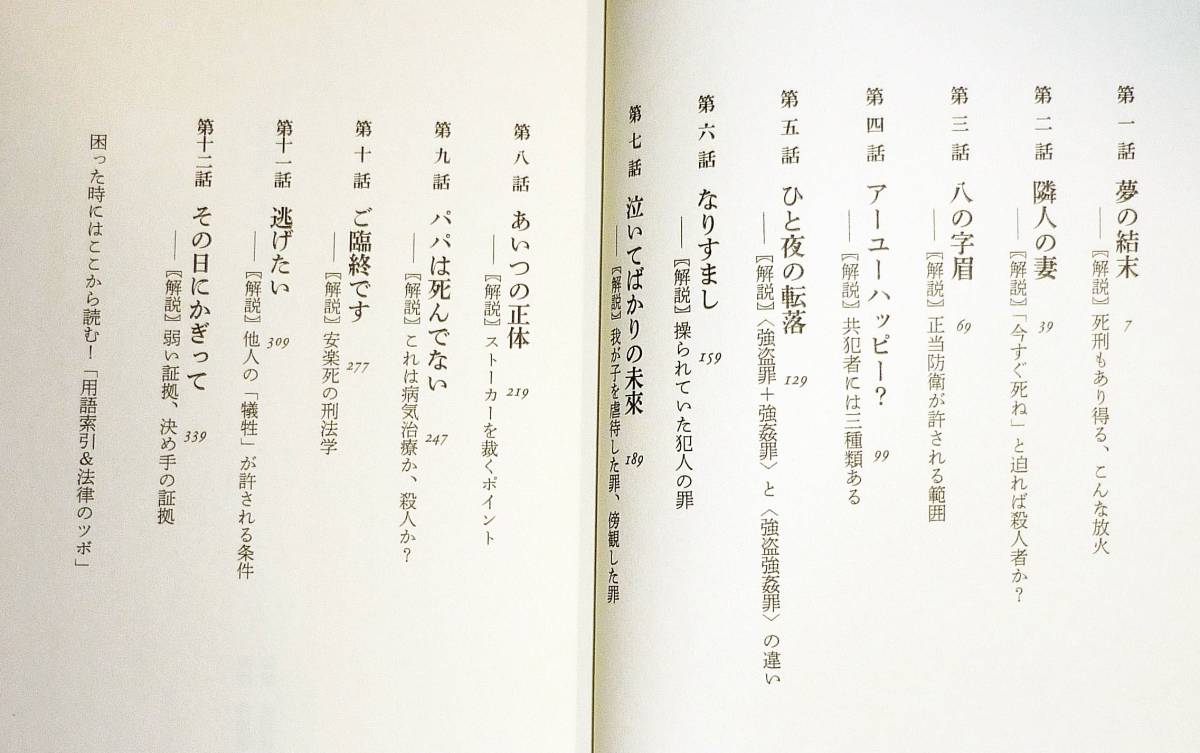 第一話 夢の結末 7
――【解説】死刑もあり得る、こんな放火
第二話 隣人の妻 39
――【解説】「今すぐ死ね」と迫れば殺人者か？
第三話 八の字眉 69
――【解説】正当防衛が許される範囲
第四話 アーユーハッピー？ 99
――【解説】共犯者には三種類ある
第五話 ひと夜の転落 129
――【解説】〈強盗罪＋強姦罪〉と〈強盗強姦罪〉の違い
第六話 なりすまし 159
――【解説】操られていた犯人の罪
第七話 泣いてばかりの未來 189
――【解説】我が子を虐待した罪、傍観した罪
第八話 あいつの正体 219
――【解説】ストーカーを裁くポイント
第九話 パパは死んでない 247
――【解説】これは病気治療か、殺人か？
第十話 ご臨終です 277
――【解説】安楽死の刑法学
第十一話 逃げたい 309
――【解説】他人の「犠牲」が許される条件
第十二話 その日にかぎって 339
――【解説】弱い証拠、決め手の証拠
困った時にはここから読む！「用語索引＆法律のツボ」